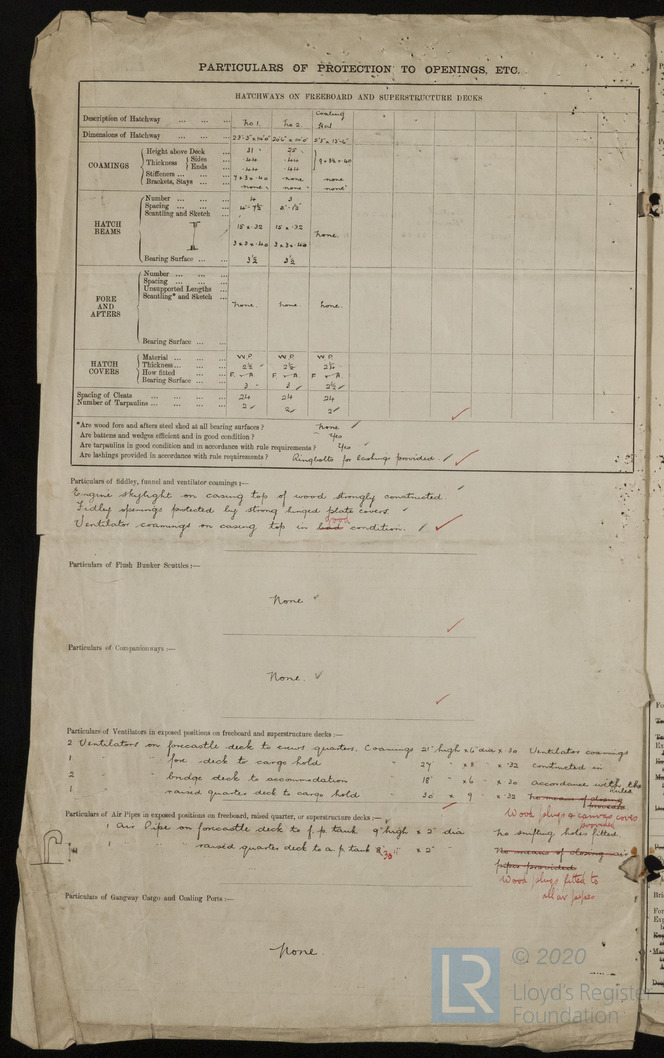 PARTICULARS OF PROTECTION TO OPENINGS, ETC.
HATCHWAYS ON FREEBOARD AND SUPERSTRUCTURE DECKS
Description of Hatchway ... ... ... No 1. No 2. Coaling
Dimensions of Hatchway ... ... ...
COAMINGS
Height above Deck ... 31 25
Thickness { Sides ... .44 .44 9 x 3½ x .40
Ends ... .44 .44
Stiffeners ... ... ... 7 x 3 x .40 none none
Brackets, Stays ... ... none none none
HATCH BEAMS
Number ... ... ... 4 3
Spacing ... ... ... 4'-7½
Scantling and Sketch ...
15 x .32 15 x .32 None.
3 x 3 x .40 3 x 3 x .40
Bearing Surface ... ... 3½ 3½
FORE AND AFTERS
Number ... ... ...
Spacing ... ... ...
Unsupported Lengths ...
Scantling* and Sketch ...
None. None. None.
Bearing Surface ... ...
HATCH COVERS
Material ... ... ... W.P. W.P. W.P.
Thickness ... ... ... 2½ 2½ 2½
How fitted ... ... F. & A. F. & A. F. & A.
Bearing Surface ... ... 3 3 2½
Spacing of Cleats ... ... ... 24 24 24
Number of Tarpaulins ... ... ... 2 2 2
*Are wood fore and afters steel shod at all bearing surfaces? None
Are battens and wedges efficient and in good condition? Yes
Are tarpaulins in good condition and in accordance with rule requirements? Yes
Are lashings provided in accordance with rule requirements? Ringbolts for lashings provided.
Particulars of fiddley, funnel and ventilator coamings:—
Engine skylight on casing top of wood strongly constructed.
Fidley openings protected by strong hinged plate covers.
good
Ventilator coamings on casing top in bad condition.
Particulars of Flush Bunker Scuttles:—
None
Particulars of Companionways:—
None.
Particulars of Ventilators in exposed positions on freeboard and superstructure decks:—
2 Ventilators on forecastle deck to crews quarters. Coamings 21" high x 6" dia x .30 Ventilator coamings
1 " " fore deck to cargo hold " 27 " x 8 " x .32 constructed in
2 " " bridge deck to accommodation " 18 " x 6 " x .30 accordance with the
rules
1 " " raised quarter deck to cargo hold " 30 " x 9 " x .32 No means of closing
provided
Wood plugs & canvas covers
provided
Particulars of Air Pipes in exposed positions on freeboard, raised quarter, or superstructure decks:—
1 Air Pipe on forecastle deck to f.p. tank 9" high x 2" dia No snifting holes fitted.
1 " " raised quarter deck to a.p. tank 30" x 2" No means of closing air
pipes provided
Wood plugs fitted to
all air pipes
Particulars of Gangway Cargo and Coaling Ports:—
None.
LR
© 2020
Lloyd's Register
Foundation